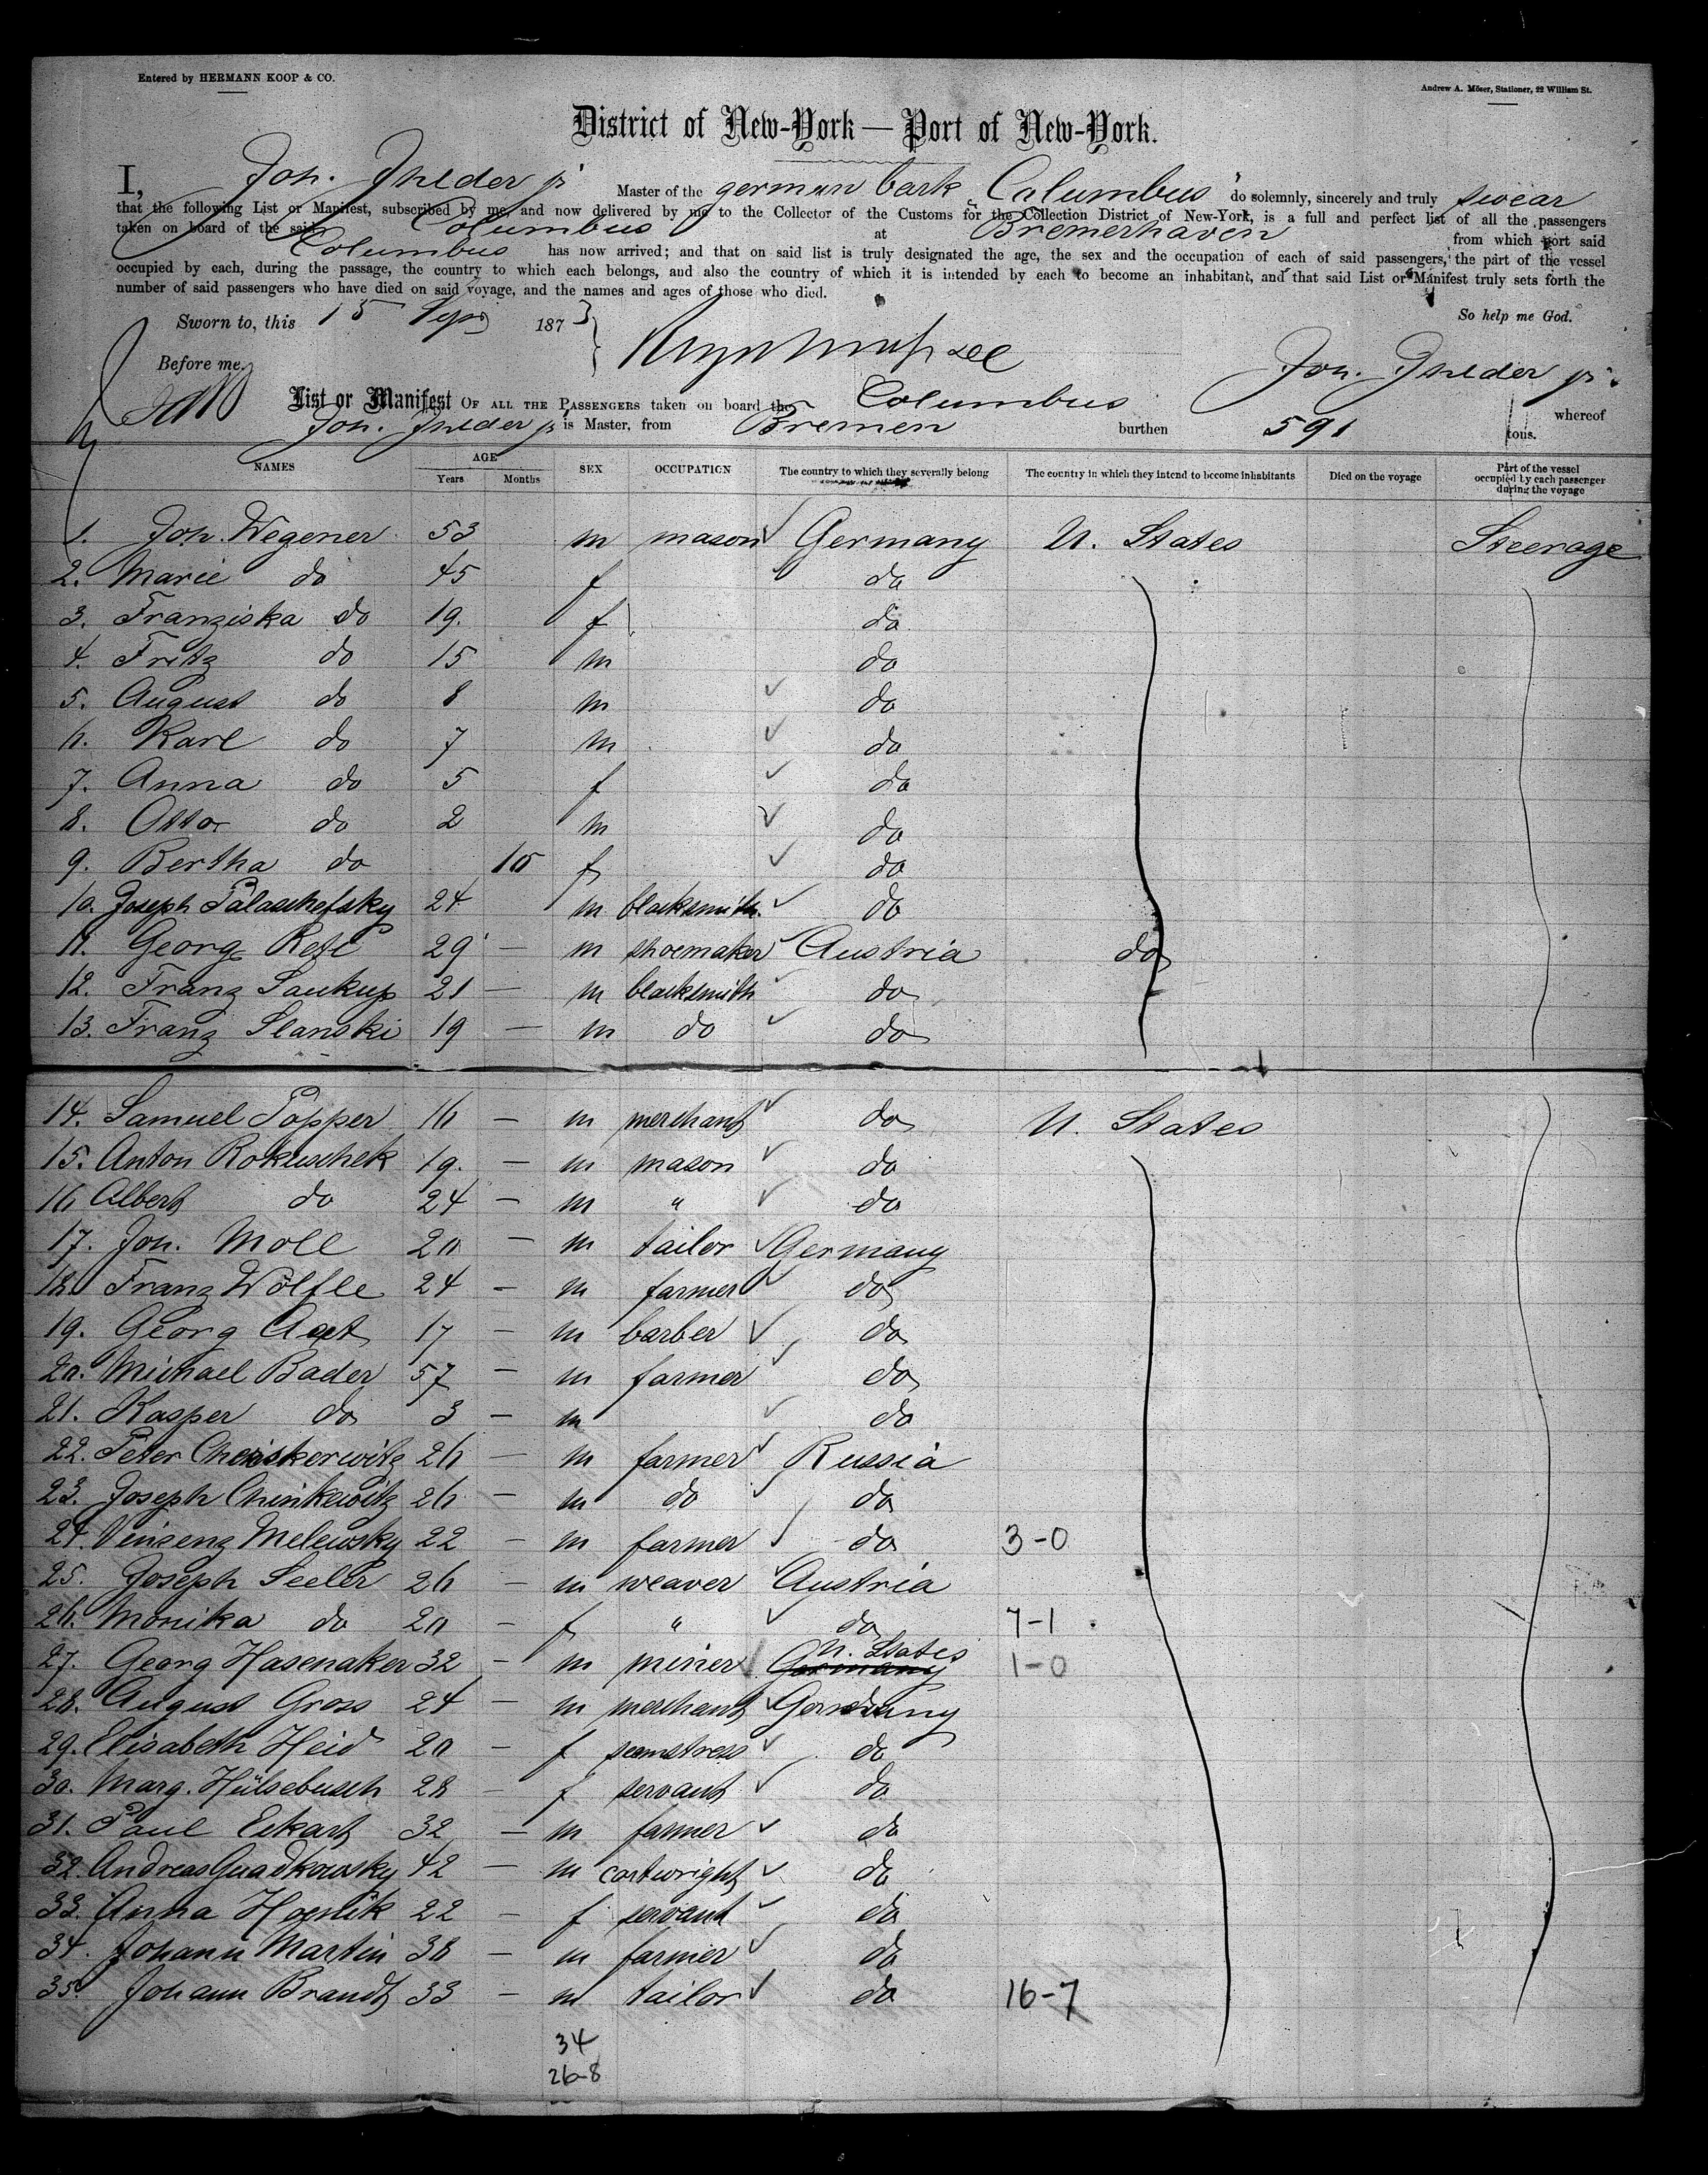 Entered by HERMANN KOOP & CO.
Andrew A. Möser, Stationer, 22 William St.
District of New-York — Port of New-York.
I, Joh. jr Master of the german bark "Columbus" do solemnly, sincerely and truly swear
that the following List or Manifest, subscribed by me, and now delivered by me to the Collector of the Customs for the Collection District of New-York, is a full and perfect list of all the passengers
taken on board of the said Columbus at Bremerhaven from which port said
Columbus has now arrived; and that on said list is truly designated the age, the sex and the occupation of each of said passengers, the part of the vessel
occupied by each, during the passage, the country to which each belongs, and also the country of which it is intended by each to become an inhabitant, and that said List or Manifest truly sets forth the
number of said passengers who have died on said voyage, and the names and ages of those who died.
Sworn to, this 15 Sep 1873 So help me God.
Before me,
Joh. jr.
List or Manifest OF ALL THE PASSENGERS taken on board the Columbus whereof
Joh. jr is Master, from Bremen burthen 591 tons.
NAMES AGE Years Months SEX OCCUPATION The country to which they severally belong The country in which they intend to become inhabitants Died on the voyage Part of the vessel occupied by each passenger during the voyage
1. Joh. Wegener 53 m mason Germany U. States Steerage
2. Marie do 45 f do
3. Franziska do 19. f do
4. Fritz do 15 m do
5. August do 8 m do
6. Karl do 7 m do
7. Anna do 5 f do
8. Otto do 2 m do
9. Bertha do 10 f do
10. Joseph Palaschefsky 24 m blacksmith do
11. Georg 29 — m shoemaker Austria do
12. Franz Saukup 21 — m blacksmith do
13. Franz Slanski 19 — m do do
14. Samuel Popper 16 — m merchant do U. States
15. Anton Rokuschek 19. — m mason do
16 Albert do 24 — m " do
17. Joh. Moll 20 — m tailor Germany
18. Franz Wölfle 24 — m farmer do
19. Georg 17 — m barber do
20. Michael Bader 57 — m farmer do
21. Kasper do 3 — m do
22. Peter 26 — m farmer Russia
23. Joseph 26 — m do do
24. Vinzenz Melewsky 22 — m farmer do 3-0
25. Joseph Seeler 26 — m weaver Austria
26. Monika do 20 — f " do 7-1
27. Georg Hasenaker 32 — m miner Germany U. States 1-0
28. August Gross 24 — m merchant Germany
29. Elisabeth Heid 20 — f seamstress do
30. Marg. Hülsebusch 28 — f servant do
31. Paul Eckart 32 — m farmer do
32. Andreas Guadkowsky 42 — m cartwright do
33. Anna 22 — f servant do
34. Johann Martin 38 — m farmer do
35. Johann Brandt 33 — m tailor do 16-7
34
26-8